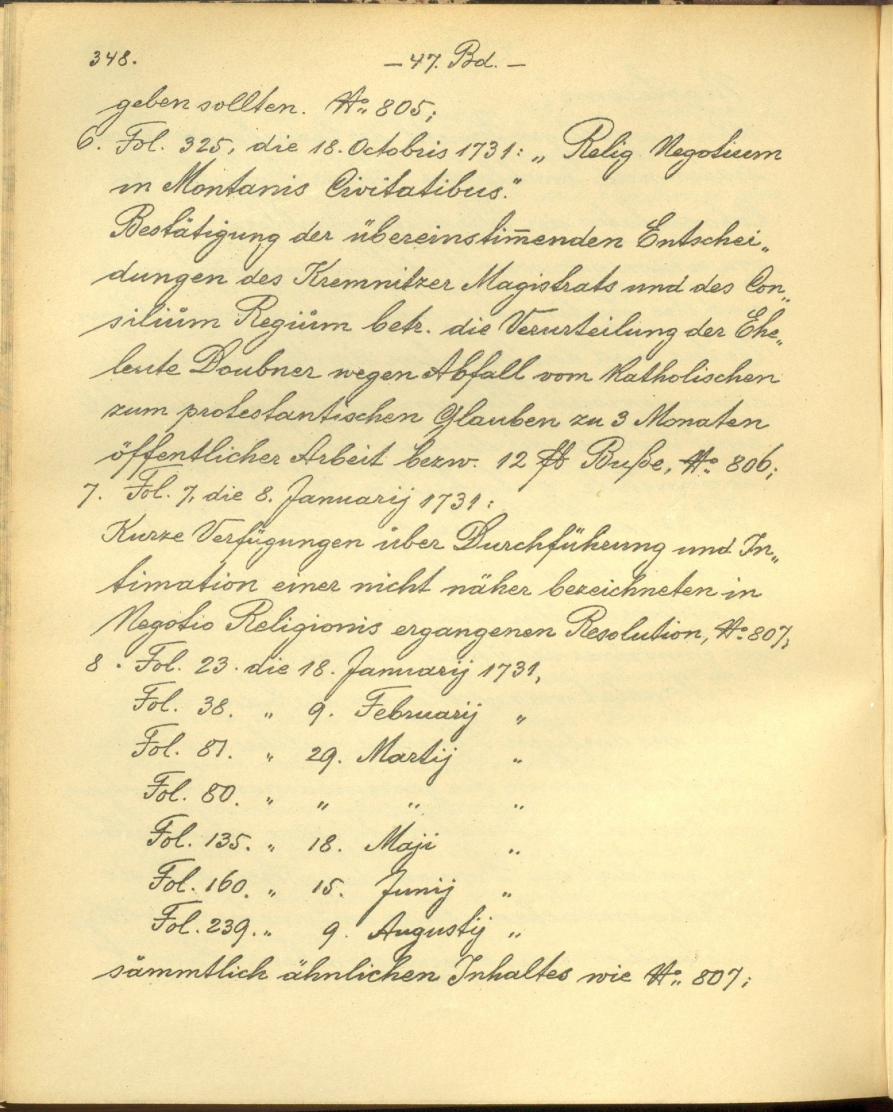 348. — 47. Bd. —
geben sollten. No. 805;
6. Fol. 325, die 18. Octobris 1731: „ Relig Negotium
in Montanis Civitatibus."
Bestätigung der übereinstim̅enden Entschei„
dungen des Kremnitzer Magistrats und des Con„
siliŭm Regiŭm betr. die Verurteilung der Ehe„
leute Doubner wegen Abfall vom Katholischen
zum protestantischen Glauben zu 3 Monaten
öffentlicher Arbeit bezw. 12 fl Buße, No. 806;
7. Fol. 7, die 8. Januarij 1731:
Kurze Verfügungen über Durchführung und In„
timation einer nicht näher bezeichneten in
Negotio Religionis ergangenen Resolution, No. 807;
8. Fol. 23. die 18. Januarij 1731,
Fol. 38. „ 9. Februarij „
Fol. 81. „ 29. Martij „
Fol. 80. „ „ „ „
Fol. 135. „ 18. Maji „
Fol. 160. „ 15. Junij „
Fol. 239. „ 9. Augustij „
sämmtlich ähnlichen Inhaltes wie No. 807;